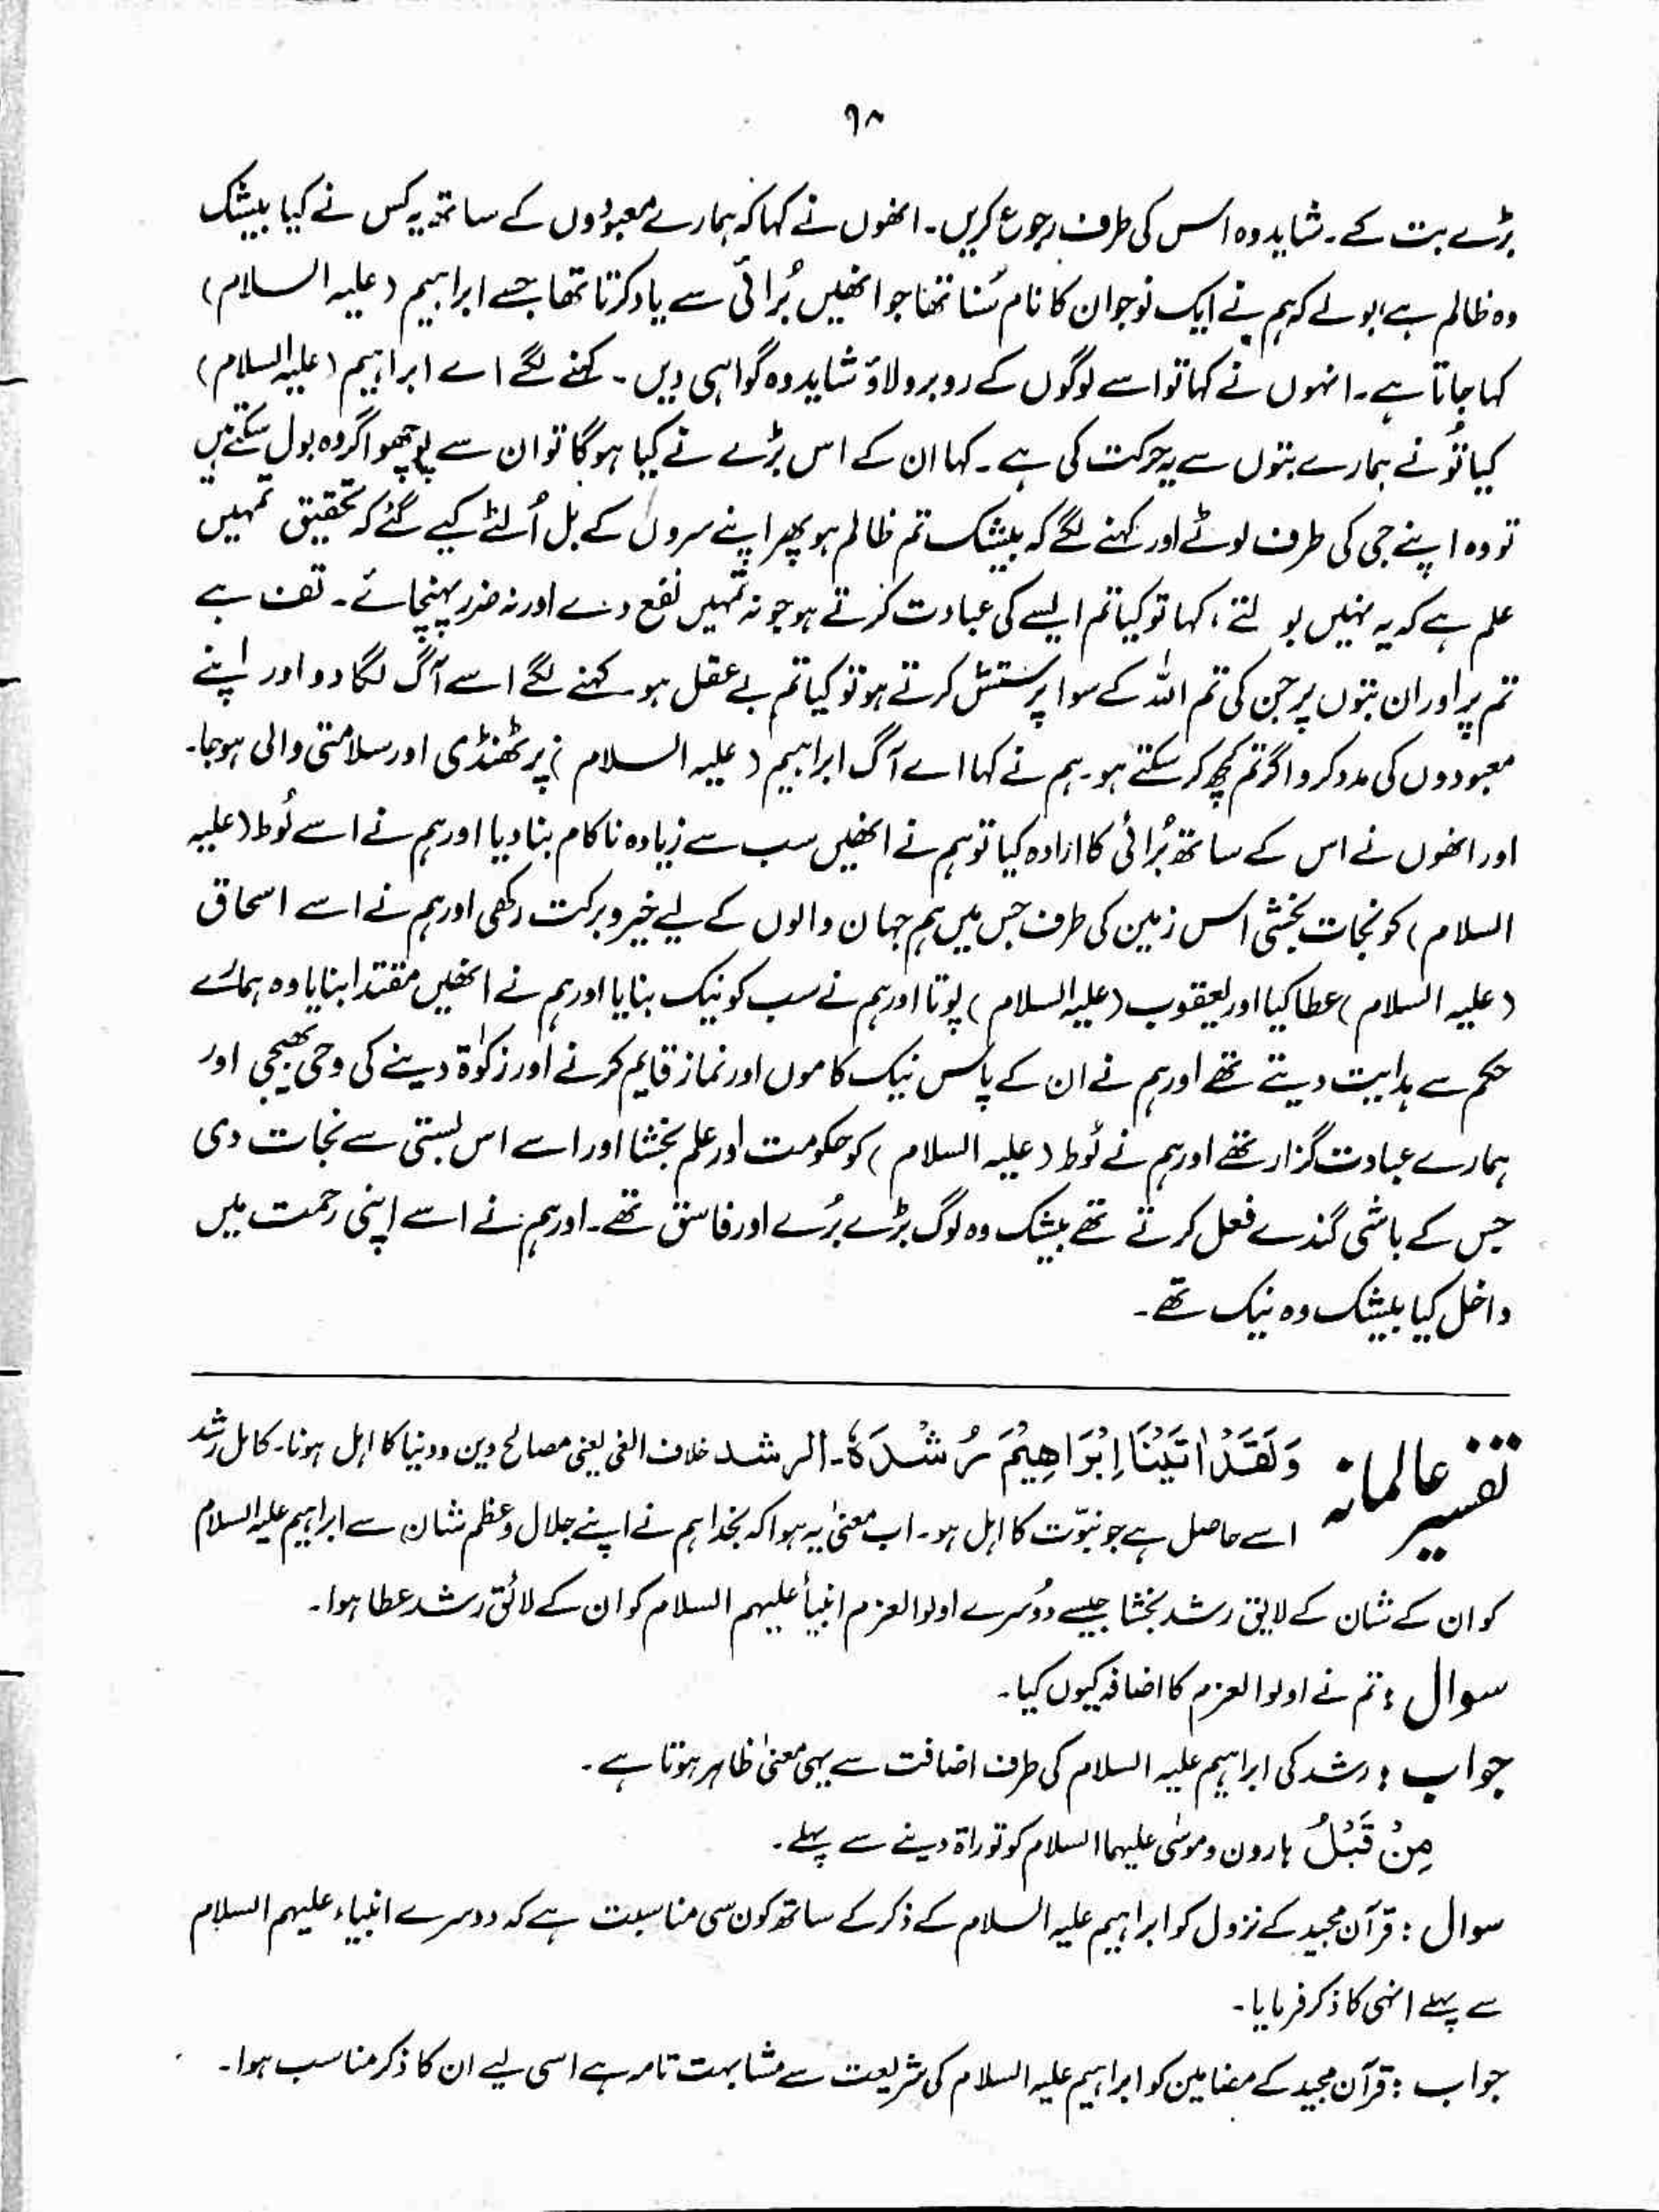 ۶۸
بڑے بت کے۔ شاید وہ اس کی طرف رجوع کریں۔ انھوں نے کہا کہ ہمارے معبودوں کے ساتھ یہ کس نے کیا بیشک
وہ ظالم ہے، بولے کہ ہم نے ایک نوجوان کا نام سُنا تھا جو انھیں بُرائی سے یاد کرتا تھا جسے ابراہیم (علیہ السلام)
کہا جاتا ہے۔ انہوں نے کہا تو اسے لوگوں کے روبرو لاؤ شاید وہ گواہی دیں۔ کہنے لگے اے ابراہیم (علیہ السلام)
کیا تُو نے ہمارے بتوں سے یہ حرکت کی ہے۔ کہا ان کے اس بڑے نے کیا ہوگا تو ان سے پوچھو اگر وہ بول سکتے ہیں
تو وہ اپنے جی کی طرف لوٹے اور کہنے لگے کہ بیشک تم ظالم ہو پھر اپنے سروں کے بل اُلٹے کیے گئے کہ تحقیق تمہیں
علم ہے کہ یہ نہیں بولتے، کہا تو کیا تم ایسے کی عبادت کرتے ہو جو نہ تمہیں نفع دے اور نہ ضرر پہنچائے۔ تف ہے
تم پر اور ان بتوں پر جن کی تم اللہ کے سوا پرستش کرتے ہو تو کیا تم بے عقل ہو۔ کہنے لگے اسے آگ لگا دو اور اپنے
معبودوں کی مدد کرو اگر تم کچھ کر سکتے ہو۔ ہم نے کہا اے آگ ابراہیم (علیہ السلام) پر ٹھنڈی اور سلامتی والی ہوجا۔
اور انھوں نے اس کے ساتھ بُرائی کا ارادہ کیا تو ہم نے انھیں سب سے زیادہ ناکام بنا دیا اور ہم نے اسے لُوط (علیہ
السلام) کو نجات بخشی اس زمین کی طرف جس میں ہم جہان والوں کے لیے خیر و برکت رکھی اور ہم نے اسے اسحاق
(علیہ السلام) عطا کیا اور یعقوب (علیہ السلام) پوتا اور ہم نے سب کو نیک بنایا اور ہم نے انھیں مقتدا بنایا وہ ہمارے
حکم سے ہدایت دیتے تھے اور ہم نے ان کے پاس نیک کاموں اور نماز قایم کرنے اور زکوٰۃ دینے کی وحی بھیجی اور
ہمارے عبادت گزار تھے اور ہم نے لُوط (علیہ السلام) کو حکومت اور علم بخشا اور اسے اس بستی سے نجات دی
جس کے باشی گندے فعل کرتے تھے بیشک وہ لوگ بڑے بُرے اور فاسق تھے۔ اور ہم نے اسے اپنی رحمت میں
داخل کیا بیشک وہ نیک تھے۔
تفسیر عالمانہ وَلَقَدْ اٰتَیْنَا اِبْرَاهِیْمَ رُشْدَهٗ۔ الرشد خلاف الغی یعنی مصالح دین و دنیا کا اہل ہونا۔ کامل رشد
اسے حاصل ہے جو نبوّت کا اہل ہو۔ اب معنیٰ یہ ہوا کہ بخدا ہم نے اپنے جلال و عظم شان سے ابراہیم علیہ السلام
کو ان کے شان کے لایق رشد بخشا جیسے دُوسرے اولوالعزم انبیأ علیہم السلام کو ان کے لائق رشد عطا ہوا۔
سوال : تم نے اولوالعزم کا اضافہ کیوں کیا۔
جواب : رشد کی ابراہیم علیہ السلام کی طرف اضافت سے یہی معنیٰ ظاہر ہوتا ہے۔
مِنْ قَبْلُ ہارون و موسٰی علیہما السلام کو توراۃ دینے سے پہلے۔
سوال : قرآن مجید کے نزول کو ابراہیم علیہ السلام کے ذکر کے ساتھ کون سی مناسبت ہے کہ دوسرے انبیاء علیہم السلام
سے پہلے انہی کا ذکر فرمایا۔
جواب : قرآن مجید کے مضامین کو ابراہیم علیہ السلام کی شریعت سے مشابہت تامہ ہے اسی لیے ان کا ذکر مناسب ہوا۔